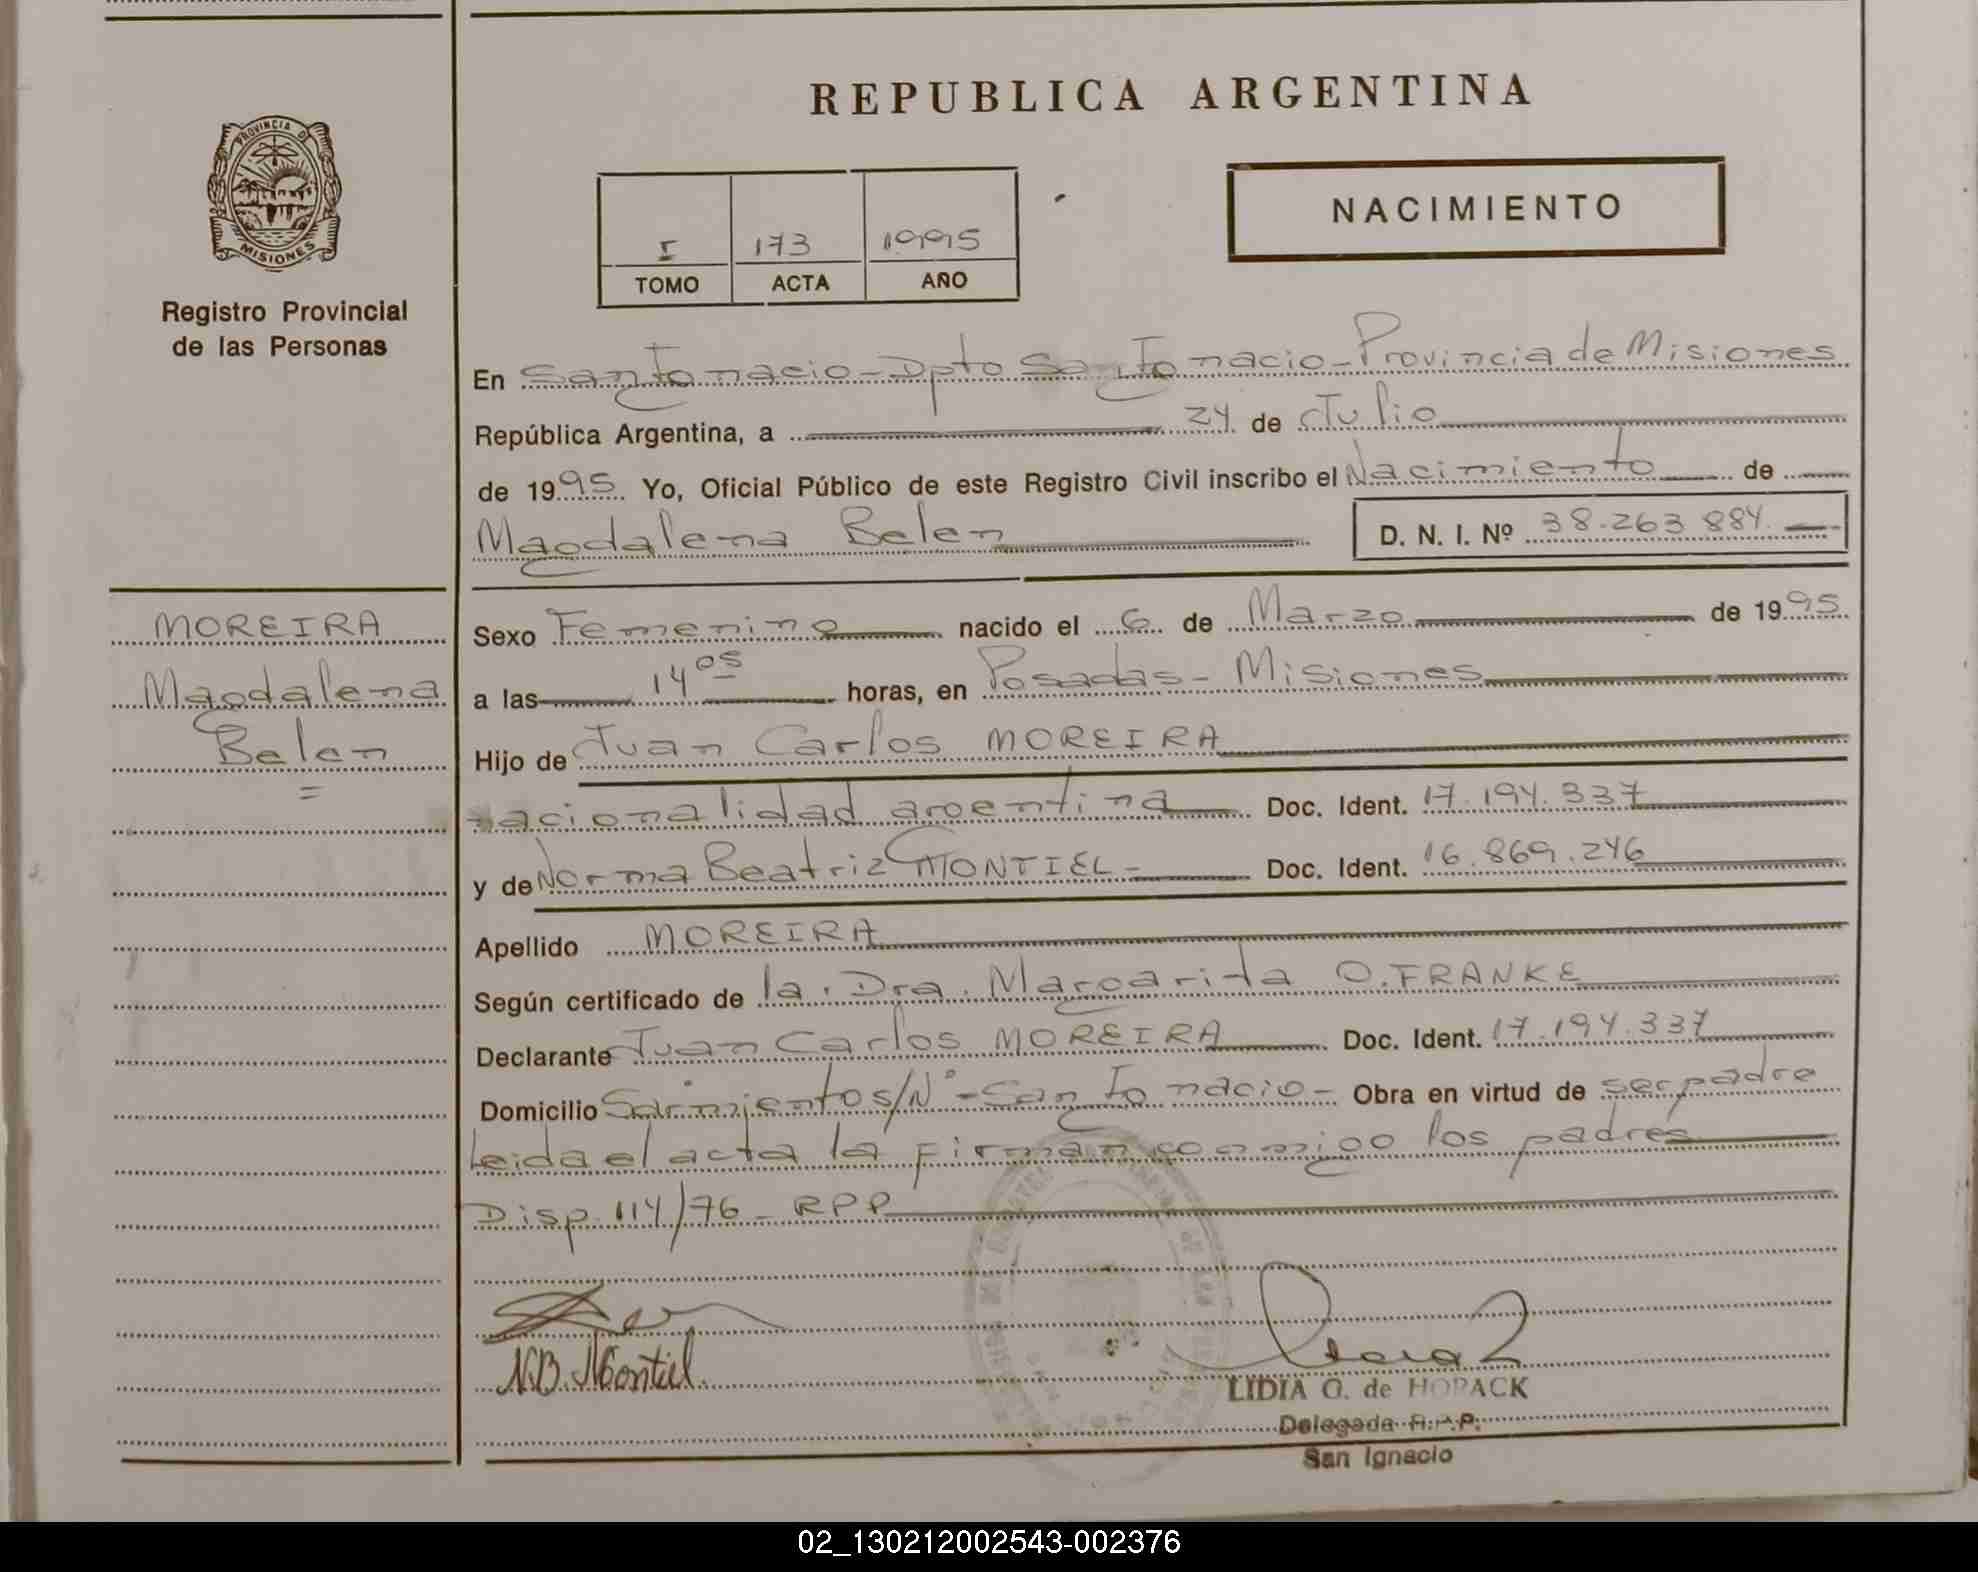 REPUBLICA ARGENTINA
PROVINCIA D
MISIONES
Registro Provincial
de las Personas
I 173 1995
TOMO ACTA AÑO
NACIMIENTO
En San Ignacio - Dpto San Ignacio - Provincia de Misiones
República Argentina, a 24 de Julio
de 1995 Yo, Oficial Público de este Registro Civil inscribo el Nacimiento de
Magdalena Belen D. N. I. Nº 38.263.884.
MOREIRA
Magdalena
Belen
=
Sexo Femenino nacido el 6 de Marzo de 1995
a las 14 05 horas, en Posadas - Misiones
Hijo de Juan Carlos MOREIRA
nacionalidad argentina Doc. Ident. 17.194.337
y de Norma Beatriz MONTIEL - Doc. Ident. 16.869.246
Apellido MOREIRA
Según certificado de la. Dra. Margarita O. FRANKE
Declarante Juan Carlos MOREIRA Doc. Ident. 17.194.337
Domicilio Sarmiento s/Nº - San Ignacio - Obra en virtud de ser padre
Leida el acta la firman conmigo los padres
Disp. 114/76 - RPP
N.B. Montiel.
LIDIA G. de HOPACK
Delegada R.P.P.
San Ignacio
02_130212002543-002376